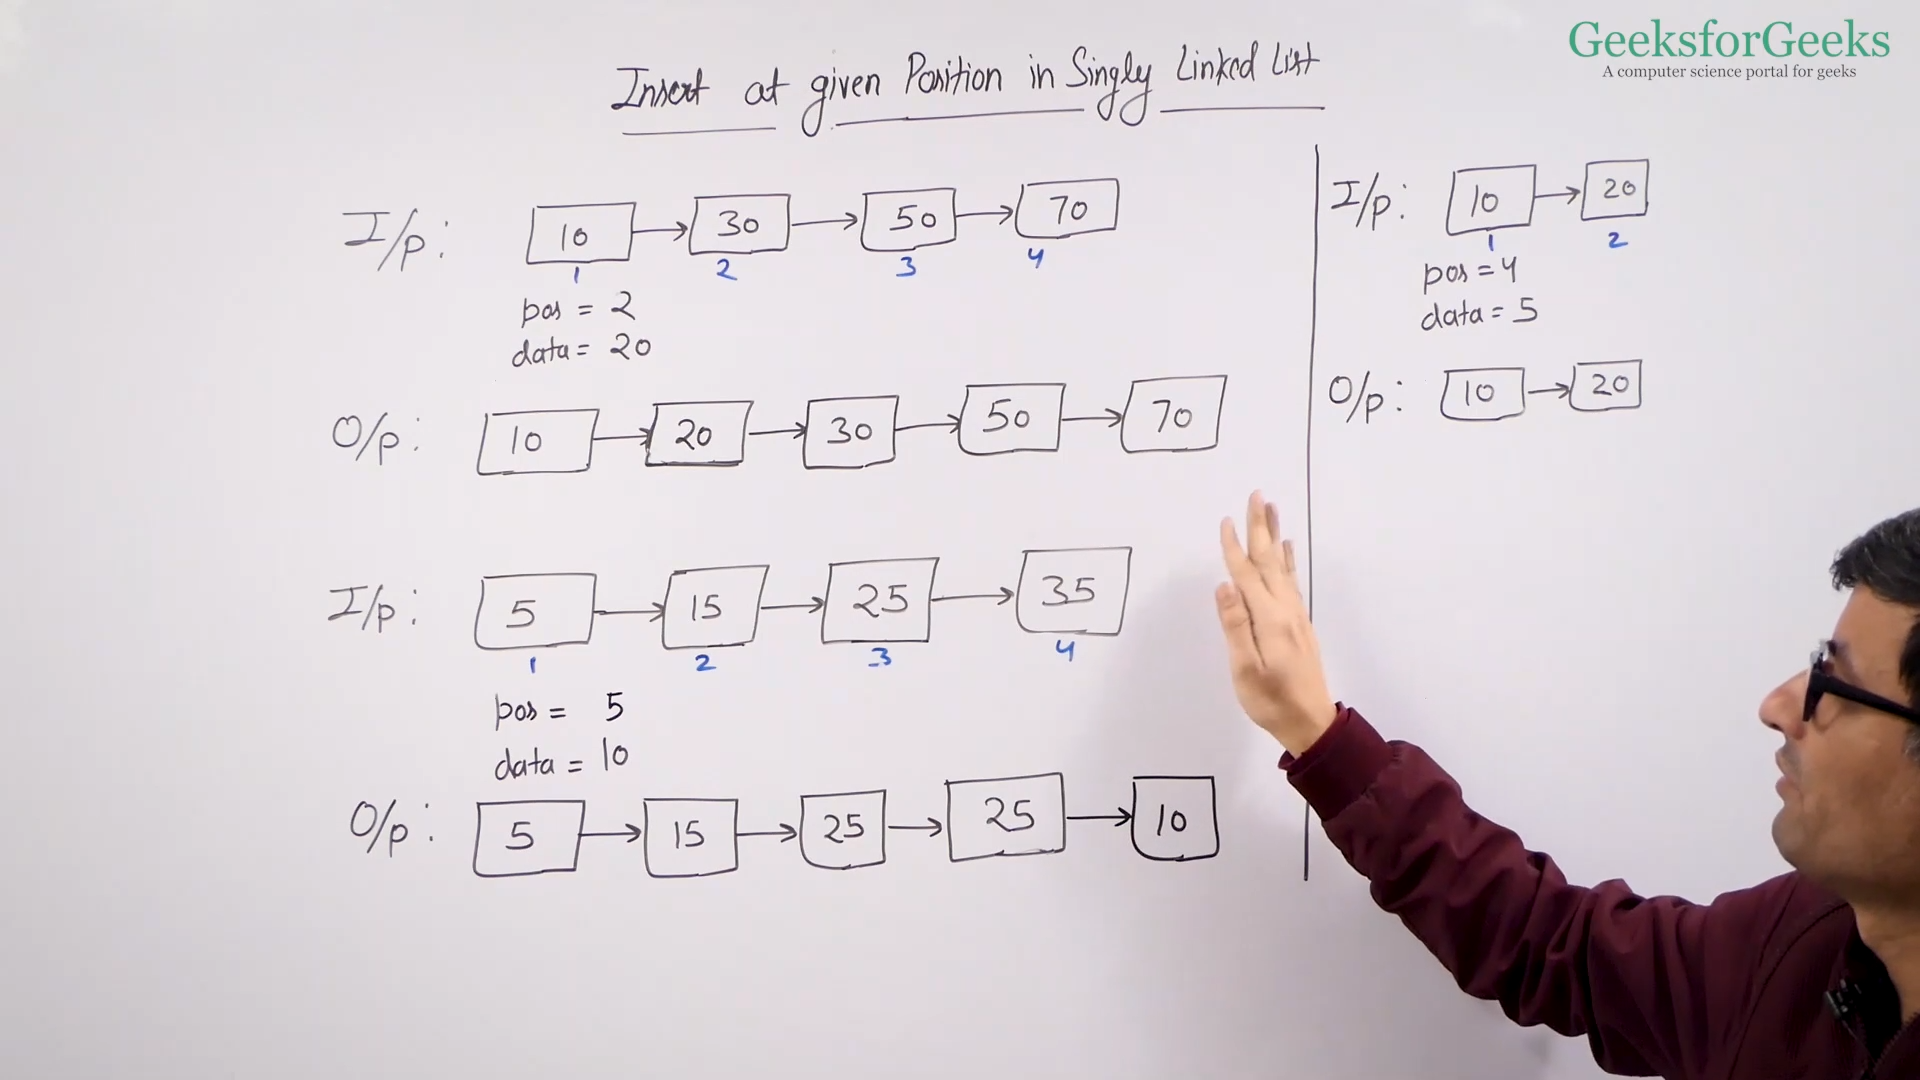 GeeksforGeeks
A computer science portal for geeks
Insert at given Position in Singly Linked List
I/p: 10 → 30 → 50 → 70
1 2 3 4
pos = 2
data = 20
O/p: 10 → 20 → 30 → 50 → 70
I/p: 5 → 15 → 25 → 35
1 2 3 4
pos = 5
data = 10
O/p: 5 → 15 → 25 → 25 → 10
I/p: 10 → 20
1 2
pos = 4
data = 5
O/p: 10 → 20